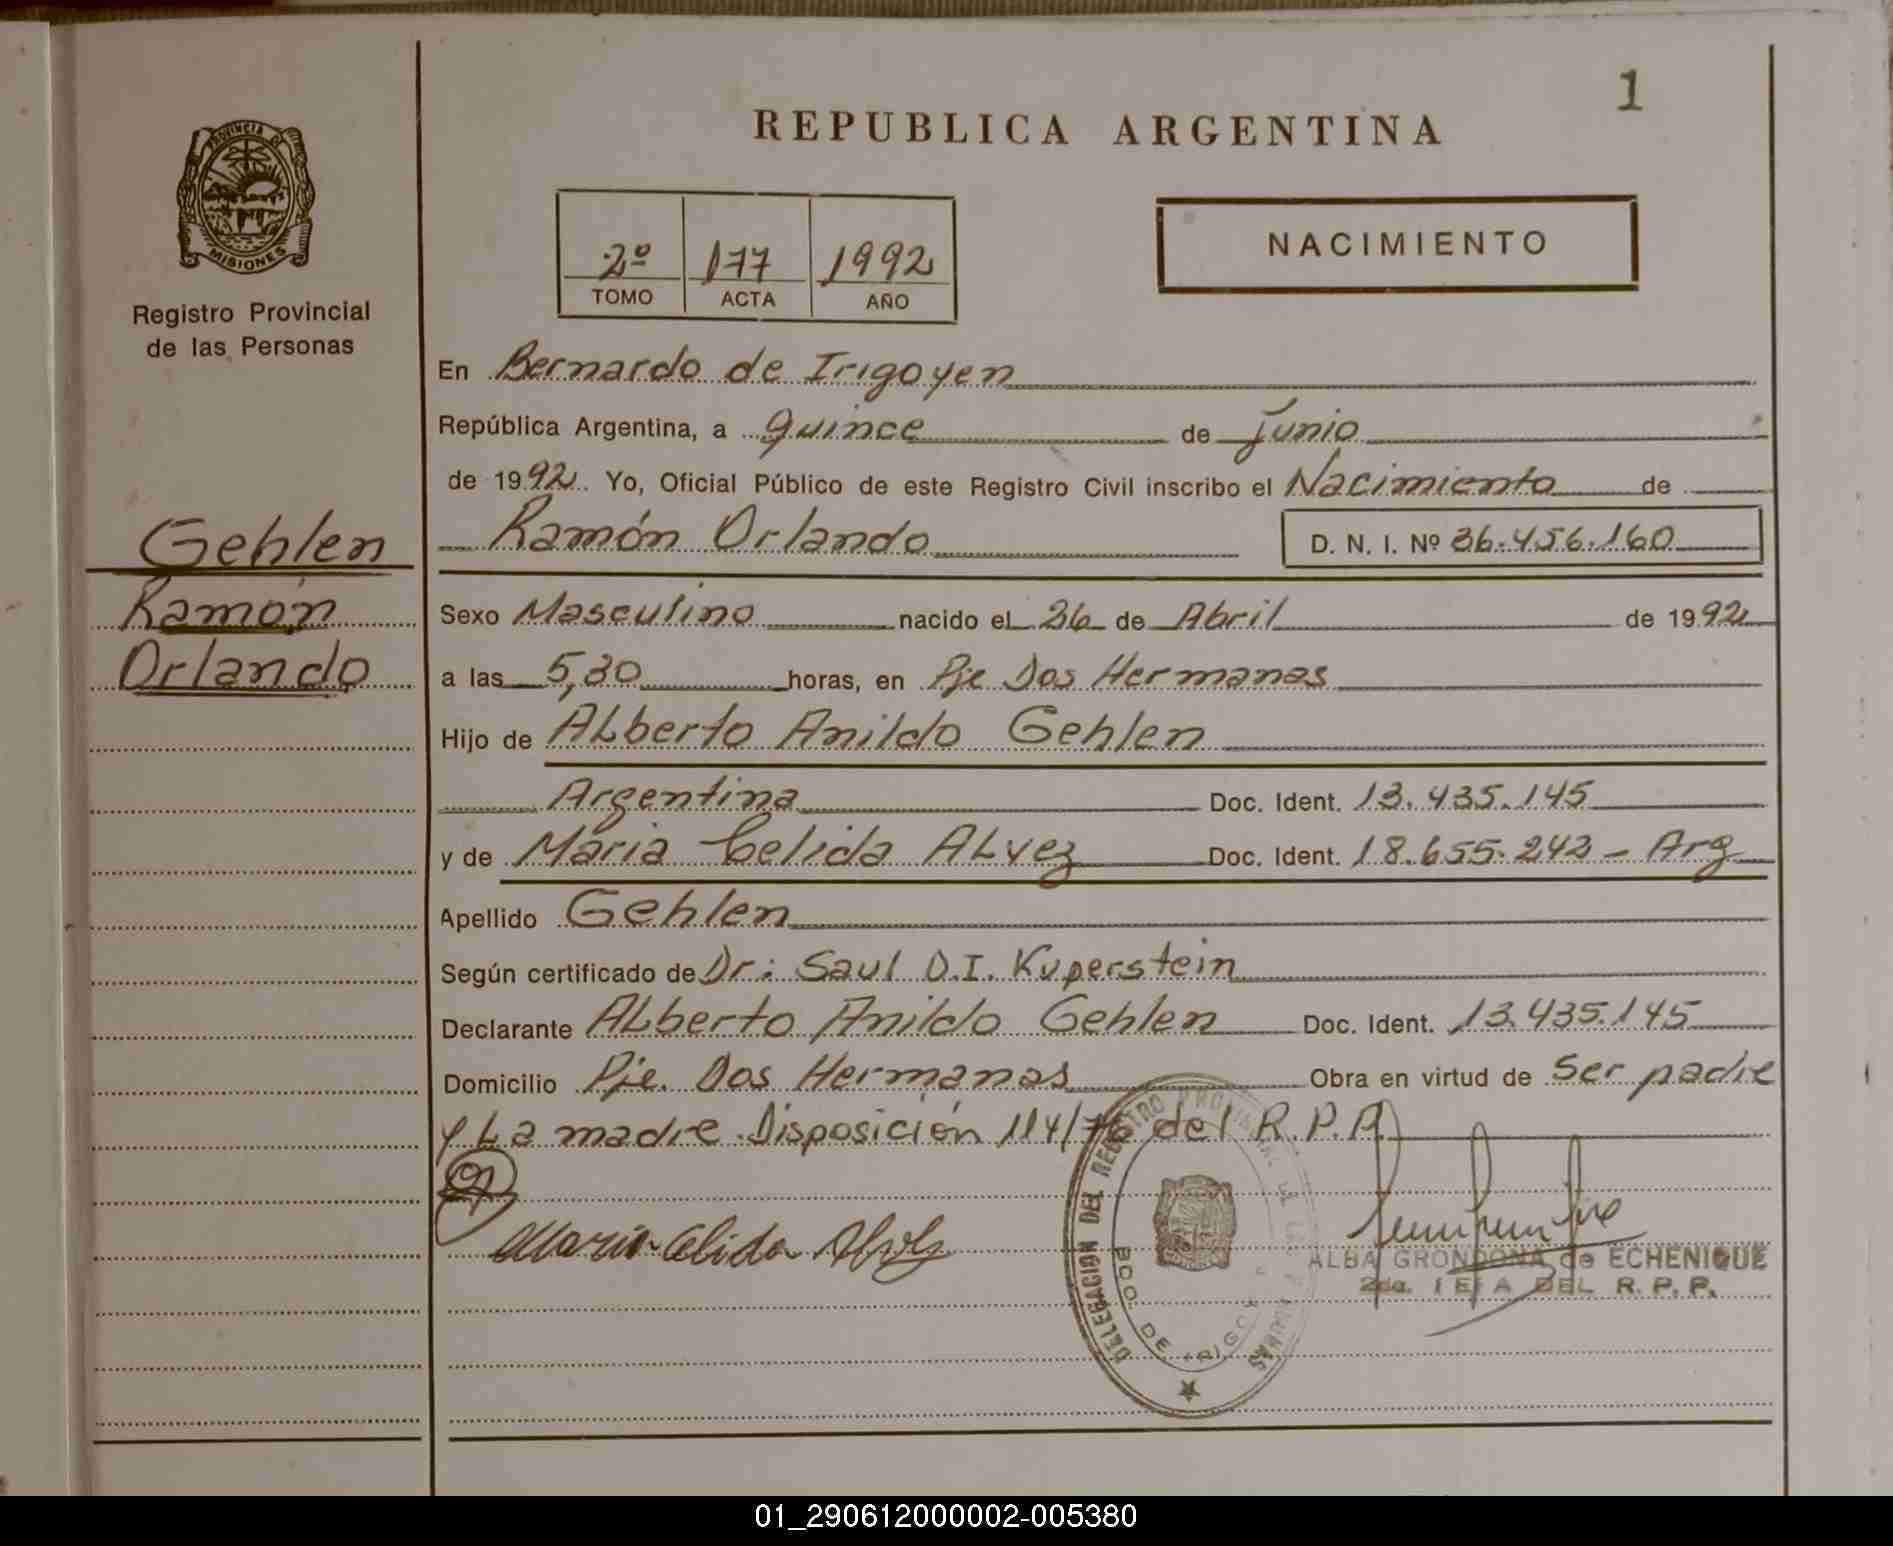 1
REPUBLICA ARGENTINA
PROVINCIA DE
MISIONES
Registro Provincial
de las Personas
2º 177 1992
TOMO ACTA AÑO
NACIMIENTO
En Bernardo de Irigoyen
República Argentina, a quince de junio
de 1992. Yo, Oficial Público de este Registro Civil inscribo el Nacimiento de
Gehlen
Ramón
Orlando
Ramón Orlando D. N. I. Nº 36.456.160
Sexo Masculino nacido el 26 de Abril de 1992
a las 5,30 horas, en Pje Dos Hermanas
Hijo de ALberto Anildo Gehlen
Argentina Doc. Ident. 13.435.145
y de Maria Celida ALvez Doc. Ident. 18.655.242 - Arg
Apellido Gehlen
Según certificado de Dr: Saul D.I. Kuperstein
Declarante ALberto Anildo Gehlen Doc. Ident. 13.435.145
Domicilio Pje. Dos Hermanas Obra en virtud de Ser padre
y La madre Disposición 114/76 del R.P.P.
Maria Celida Alvez
DELEGACION DEL REGISTRO PROVINCIAL DE LAS PERSONAS
BDO. DE IRIGOYEN
ALBA GRONDONA de ECHENIQUE
2da. JEFA DEL R. P. P.
01_290612000002-005380